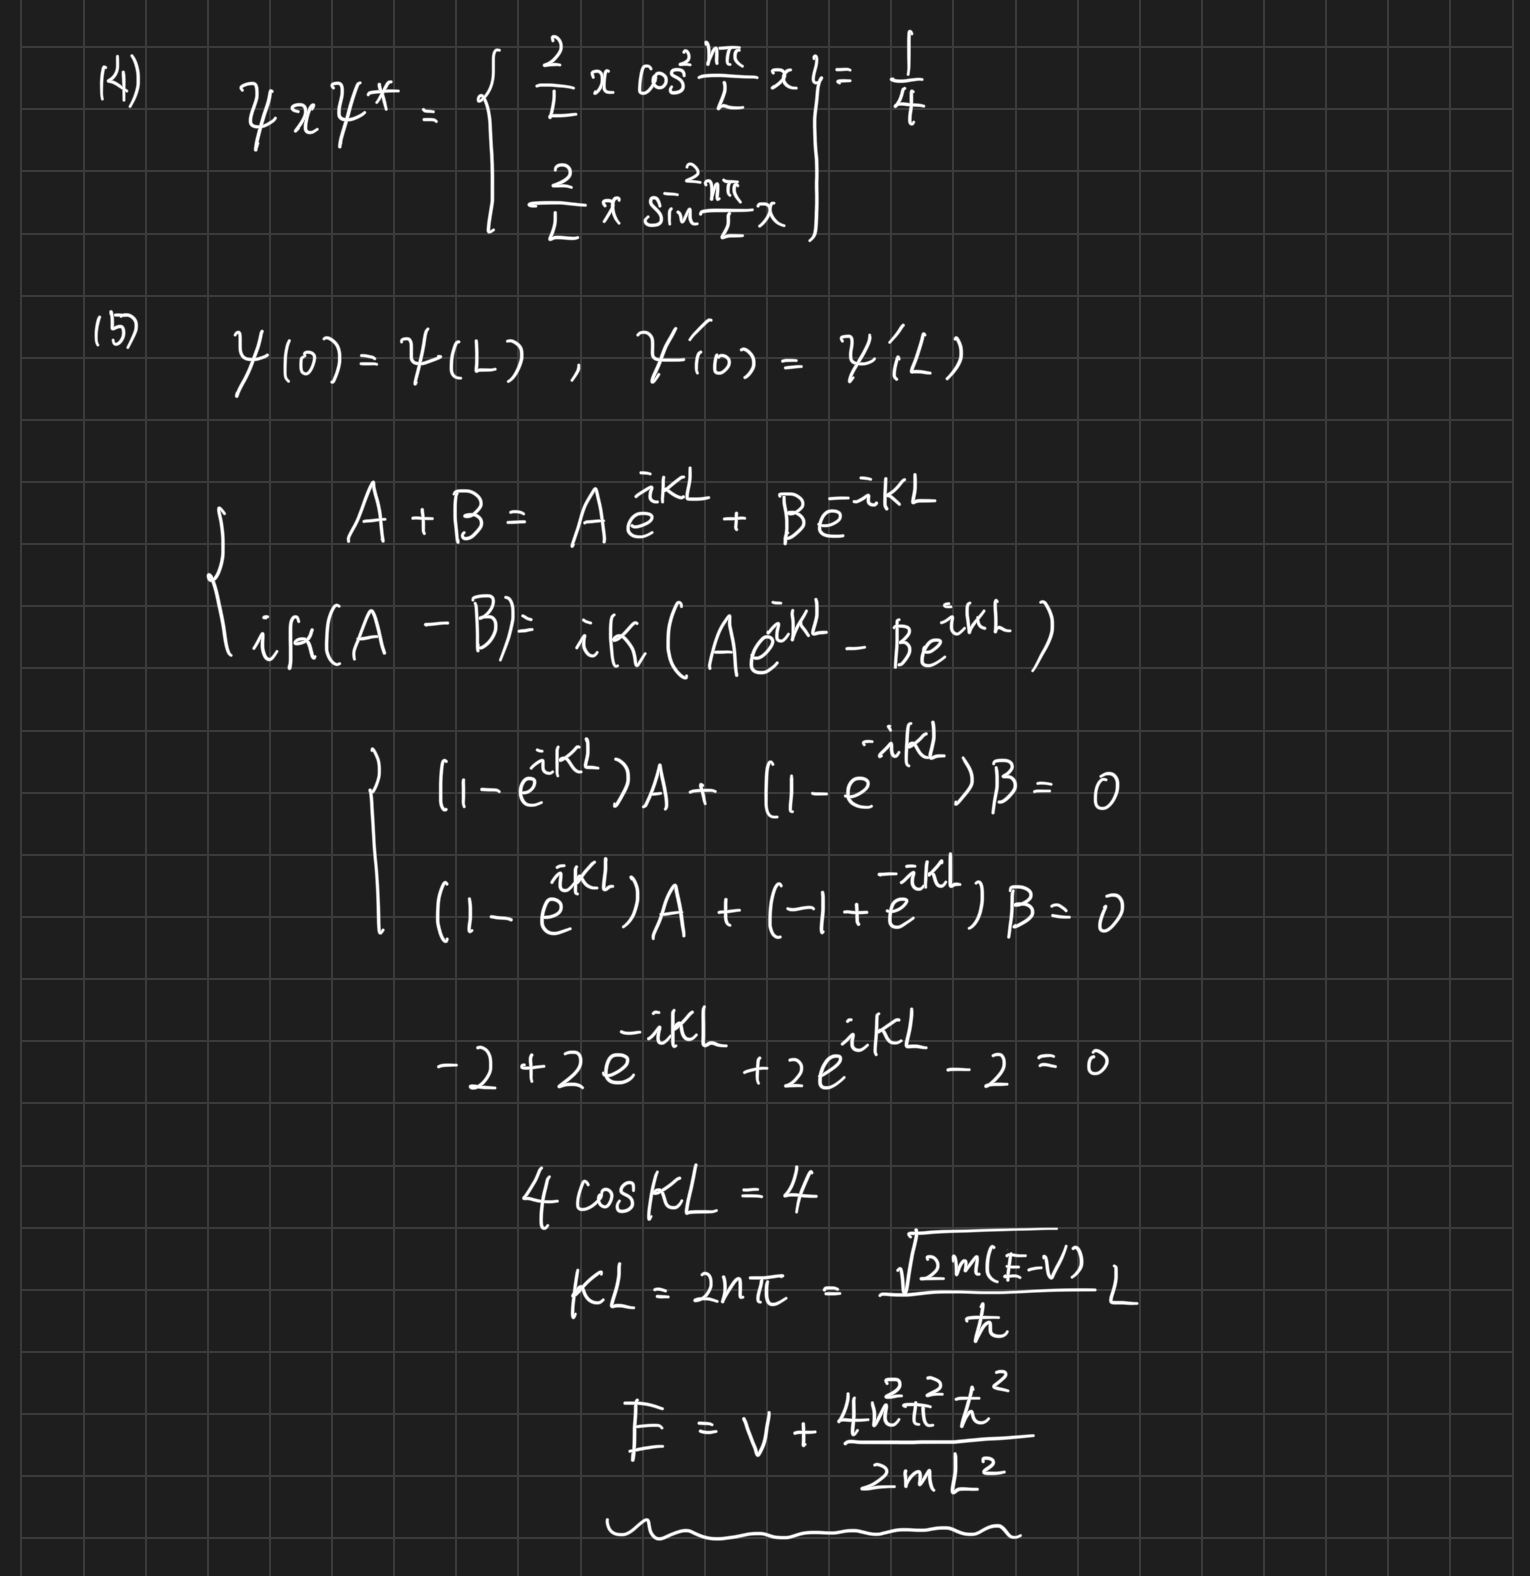 (4) ψxψ* = { 2/L x cos² nπ/L x } = 1/4
2/L x sin² nπ/L x
(5) ψ(0) = ψ(L) , ψ'(0) = ψ'(L)
A + B = A e^{iKL} + B e^{-iKL}
ik(A - B) = iK(A e^{iKL} - B e^{iKL})
(1 - e^{iKL})A + (1 - e^{-iKL})B = 0
(1 - e^{iKL})A + (-1 + e^{-iKL})B = 0
-2 + 2e^{-iKL} + 2e^{iKL} - 2 = 0
4 cosKL = 4
KL = 2nπ = √(2m(E-V)) / ħ L
E = V + 4n²π²ħ² / 2mL²